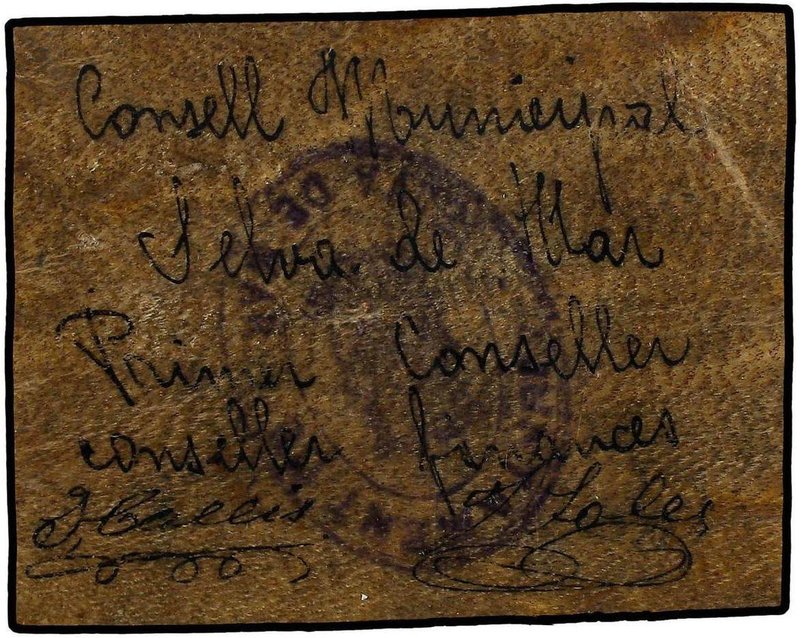 Consell Municipal
Selva de Mar
Primer Conseller
conseller finances
DE